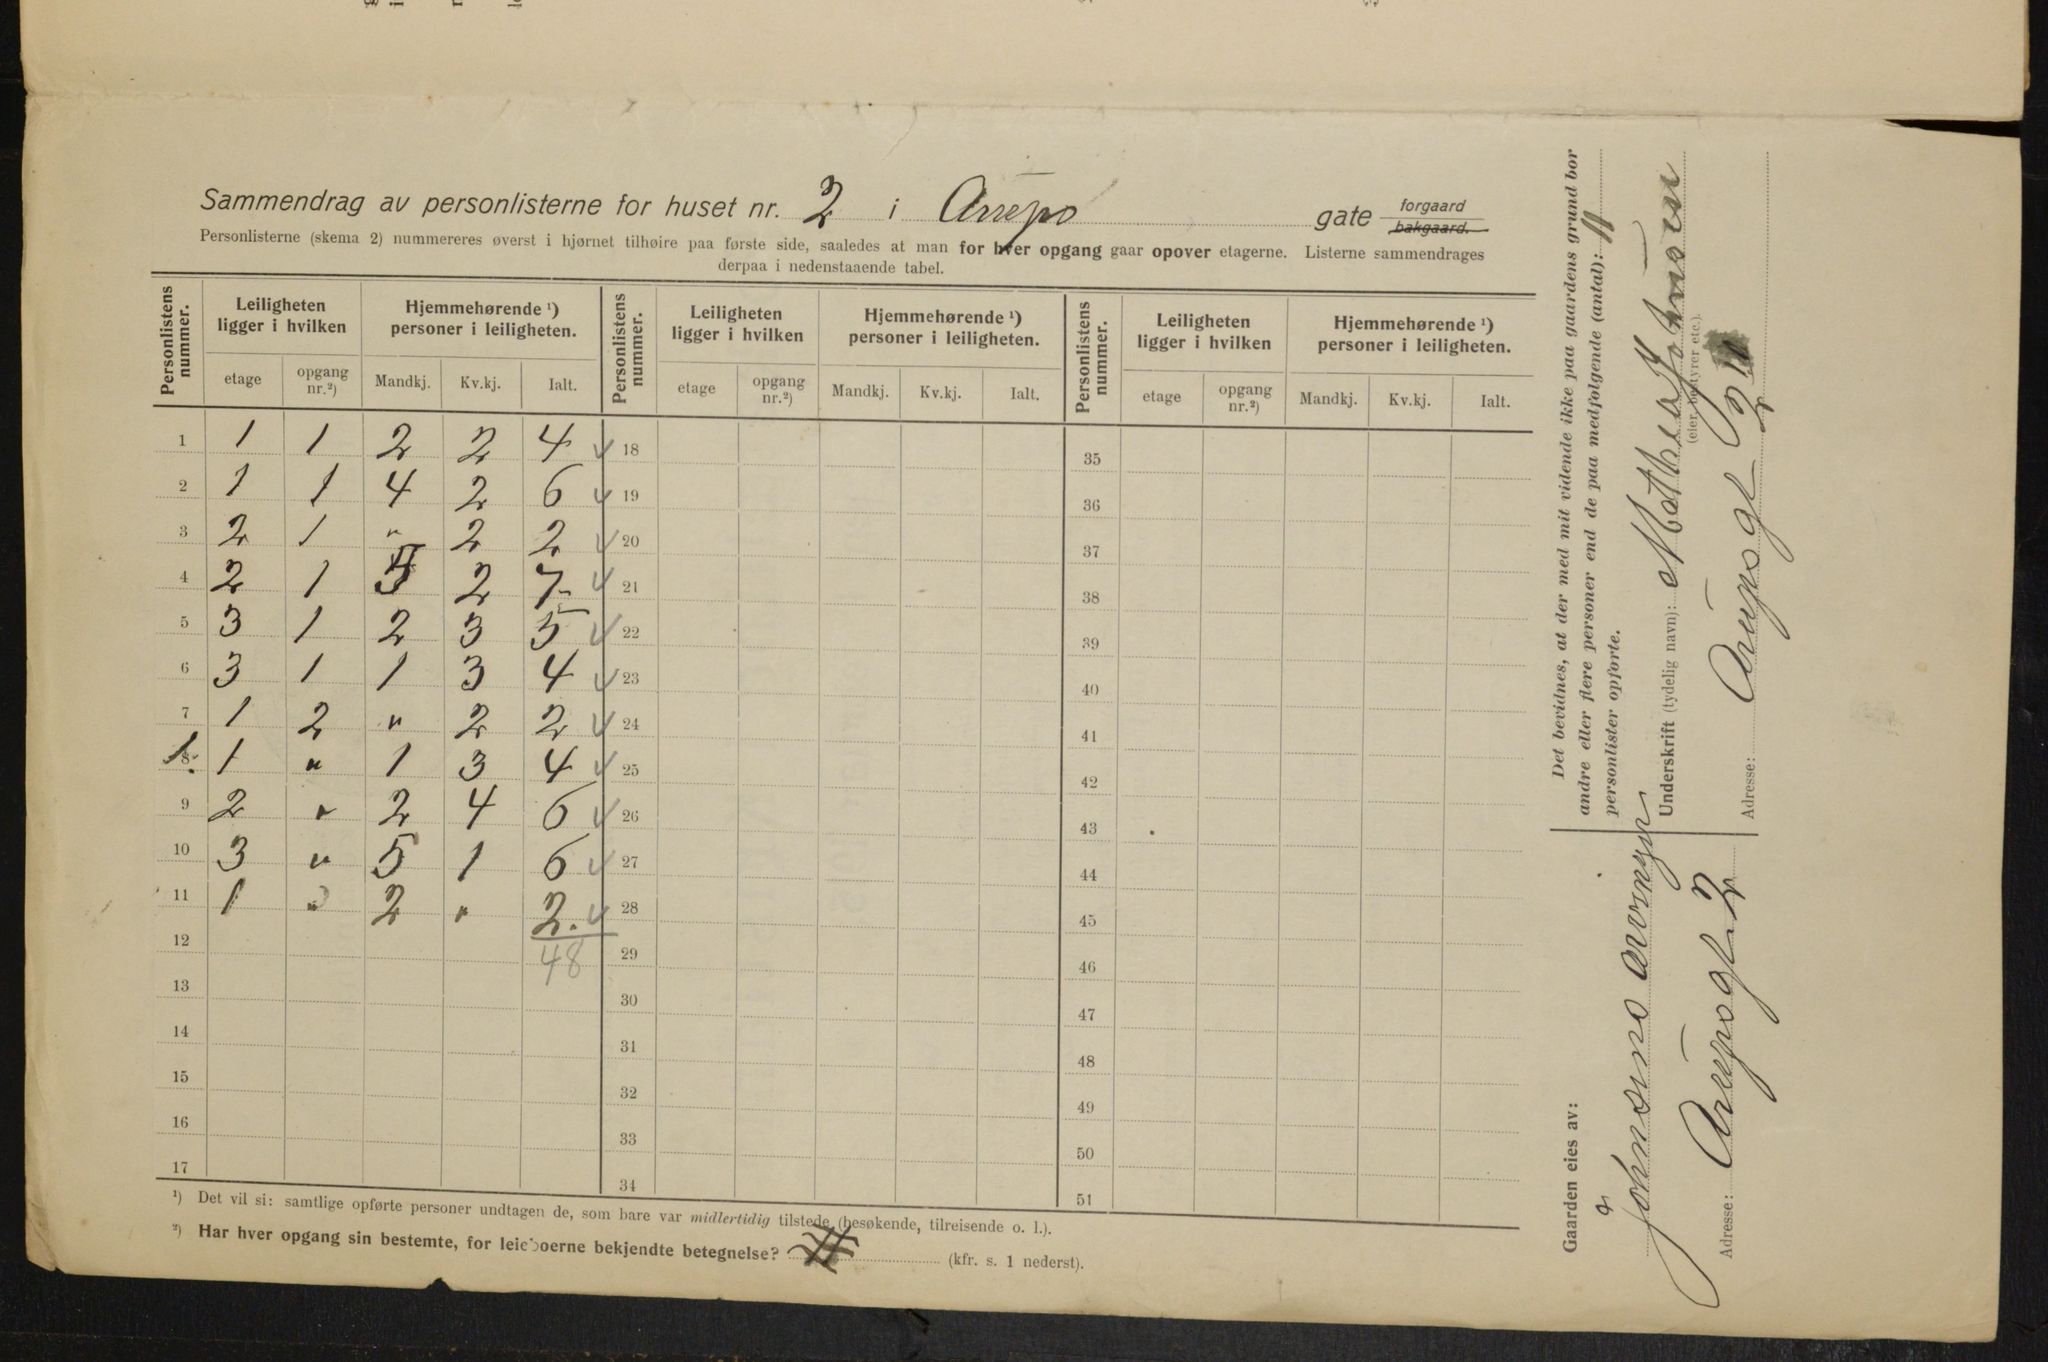 Sammendrag av personlisterne for huset nr. 2 i Arrepo gate forgaard bakgaard.
Personlisterne (skema 2) nummereres øverst i hjørnet tilhøire paa første side, saaledes at man for hver opgang gaar opover etagerne. Listerne sammendrages
derpaa i nedenstaaende tabel.
Personlistens nummer. Leiligheten ligger i hvilken Hjemmehørende ¹) personer i leiligheten. Personlistens nummer. Leiligheten ligger i hvilken Hjemmehørende ¹) personer i leiligheten. Personlistens nummer. Leiligheten ligger i hvilken Hjemmehørende ¹) personer i leiligheten.
etage opgang nr.²) Mandkj. Kv.kj. Ialt. etage opgang nr.²) Mandkj. Kv.kj. Ialt. etage opgang nr.²) Mandkj. Kv.kj. Ialt.
1 1 1 2 2 4 18 35
2 1 1 4 2 6 19 36
3 2 1 " 2 2 20 37
4 2 1 5 2 7 21 38
5 3 1 2 3 5 22 39
6 3 1 1 3 4 23 40
7 1 2 " 2 2 24 41
8 1 " 1 3 4 25 42
9 2 " 2 4 6 26 43
10 3 " 5 1 6 27 44
11 1 " 2 " 2. 28 45
12 48 29 46
13 30 47
14 31 48
15 32 49
16 33 50
17 34 51
¹) Det vil si: samtlige opførte personer undtagen de, som bare var midlertidig tilstede (besøkende, tilreisende o. l.).
²) Har hver opgang sin bestemte, for leieboerne bekjendte betegnelse? (kfr. s. 1 nederst).
Det bevidnes, at der med mit vidende ikke paa gaardens grund bor
andre eller flere personer end de paa medfølgende (antal): 11
personlister opførte.
Underskrift (tydelig navn): Mathea Johnsen
(eier, bestyrer etc.).
Adresse: Arupsgt 2
Gaarden eies av:
Johnsens arvinger
Adresse: Arupsgt 2